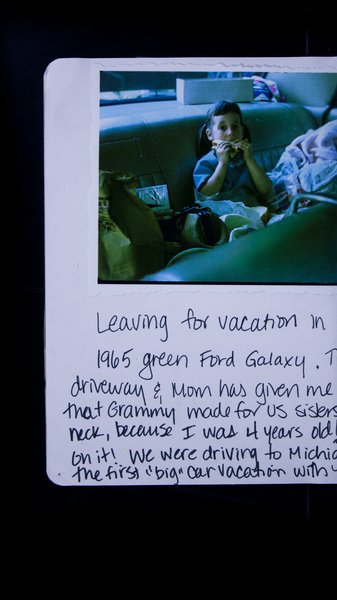 Leaving for vacation in
1965 green Ford Galaxy. T
driveway & Mom has given me
that Grammy made for us sisters
neck, because I was 4 years old
on it! We were driving to Michig
the first "big" car vacation with